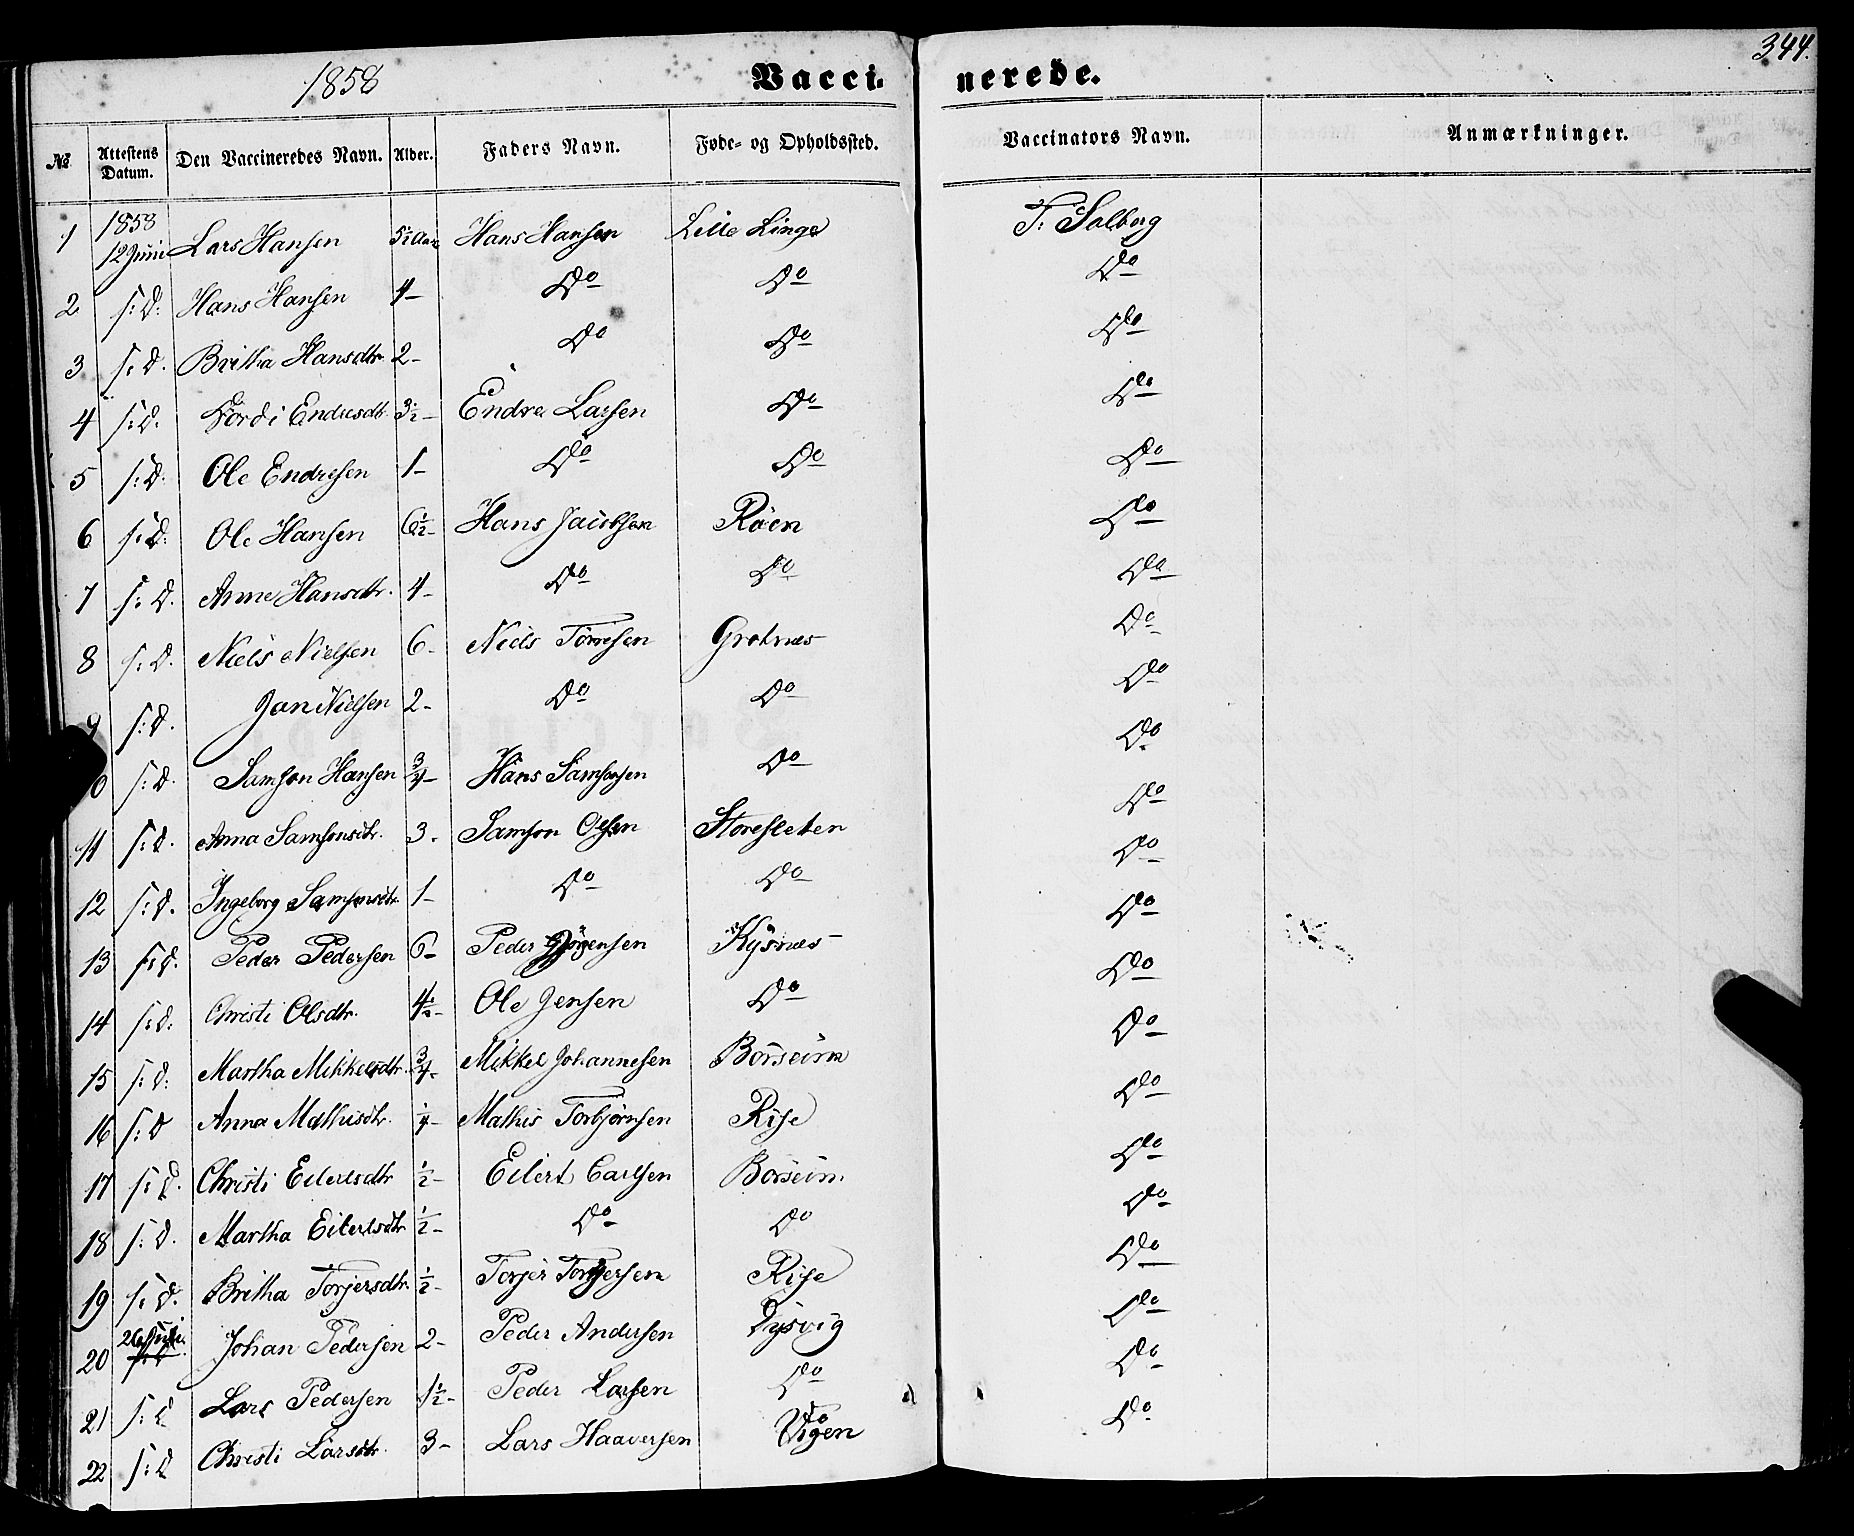 344.
1858 Vaccinerede.
№ Attestens Datum. Den Vaccineredes Navn. Alder. Faders Navn. Føde- og Opholdssted. Vaccinators Navn. Anmærkninger.
1 1858 12 Juni Lars Hansen 5½ Aar Hans Hansen Lille Linge T: Solberg
2 s: D: Hans Hansen 4- Do Do Do
3 s: D. Britha Hansdtr. 2- Do Do Do
4 s: D. Endresdtr. 3½- Endre Larsen Do Do
5 s: D. Ole Endresen 1- Do Do Do
6 s: D. Ole Hansen 6½- Hans Jacobsen Röen Do
7 s: D. Anne Hansdtr. 4- Do Do Do
8 s: D. Niels Nielsen 6- Niels Törresen Grotnæs Do
9 s: D. Jan Nielsen 2- Do Do Do
0 s: D. Samson Hansen ¾- Hans Samsonsen Do Do
11 s: D. Anna Samsonsdtr. 3- Samson Olsen Storesleten Do
12 s: D. Ingeborg Samsonsdtr. 1- Do Do Do
13 s: D. Peder Pedersen 6- Peder Jörgensen Kysnæs Do
14 s: D. Christi Olsdtr. 4½- Ole Jensen Do Do
15 s: D: Martha Mikkelsdtr. ¾- Mikkel Johannesen Borseim Do
16 s: D Anna Mathisdtr. ¼- Mathis Torbjörnsen Rise Do
17 s: D. Christi Eilertsdtr ½- Eilert Carlsen Borseim Do
18 s: D. Martha Eilertsdtr. ½- Do Do Do
19 s: D. Britha Torjersdtr. ½- Torjer Torjersen Rise Do
20 26 Juli Johan Pedersen 2- Peder Andersen Dysvig Do
21 s: D Lars Pedersen 1½- Peder Larsen Do Do
22 s: D Christi Larsdtr. 3- Lars Haaversen Vigen Do